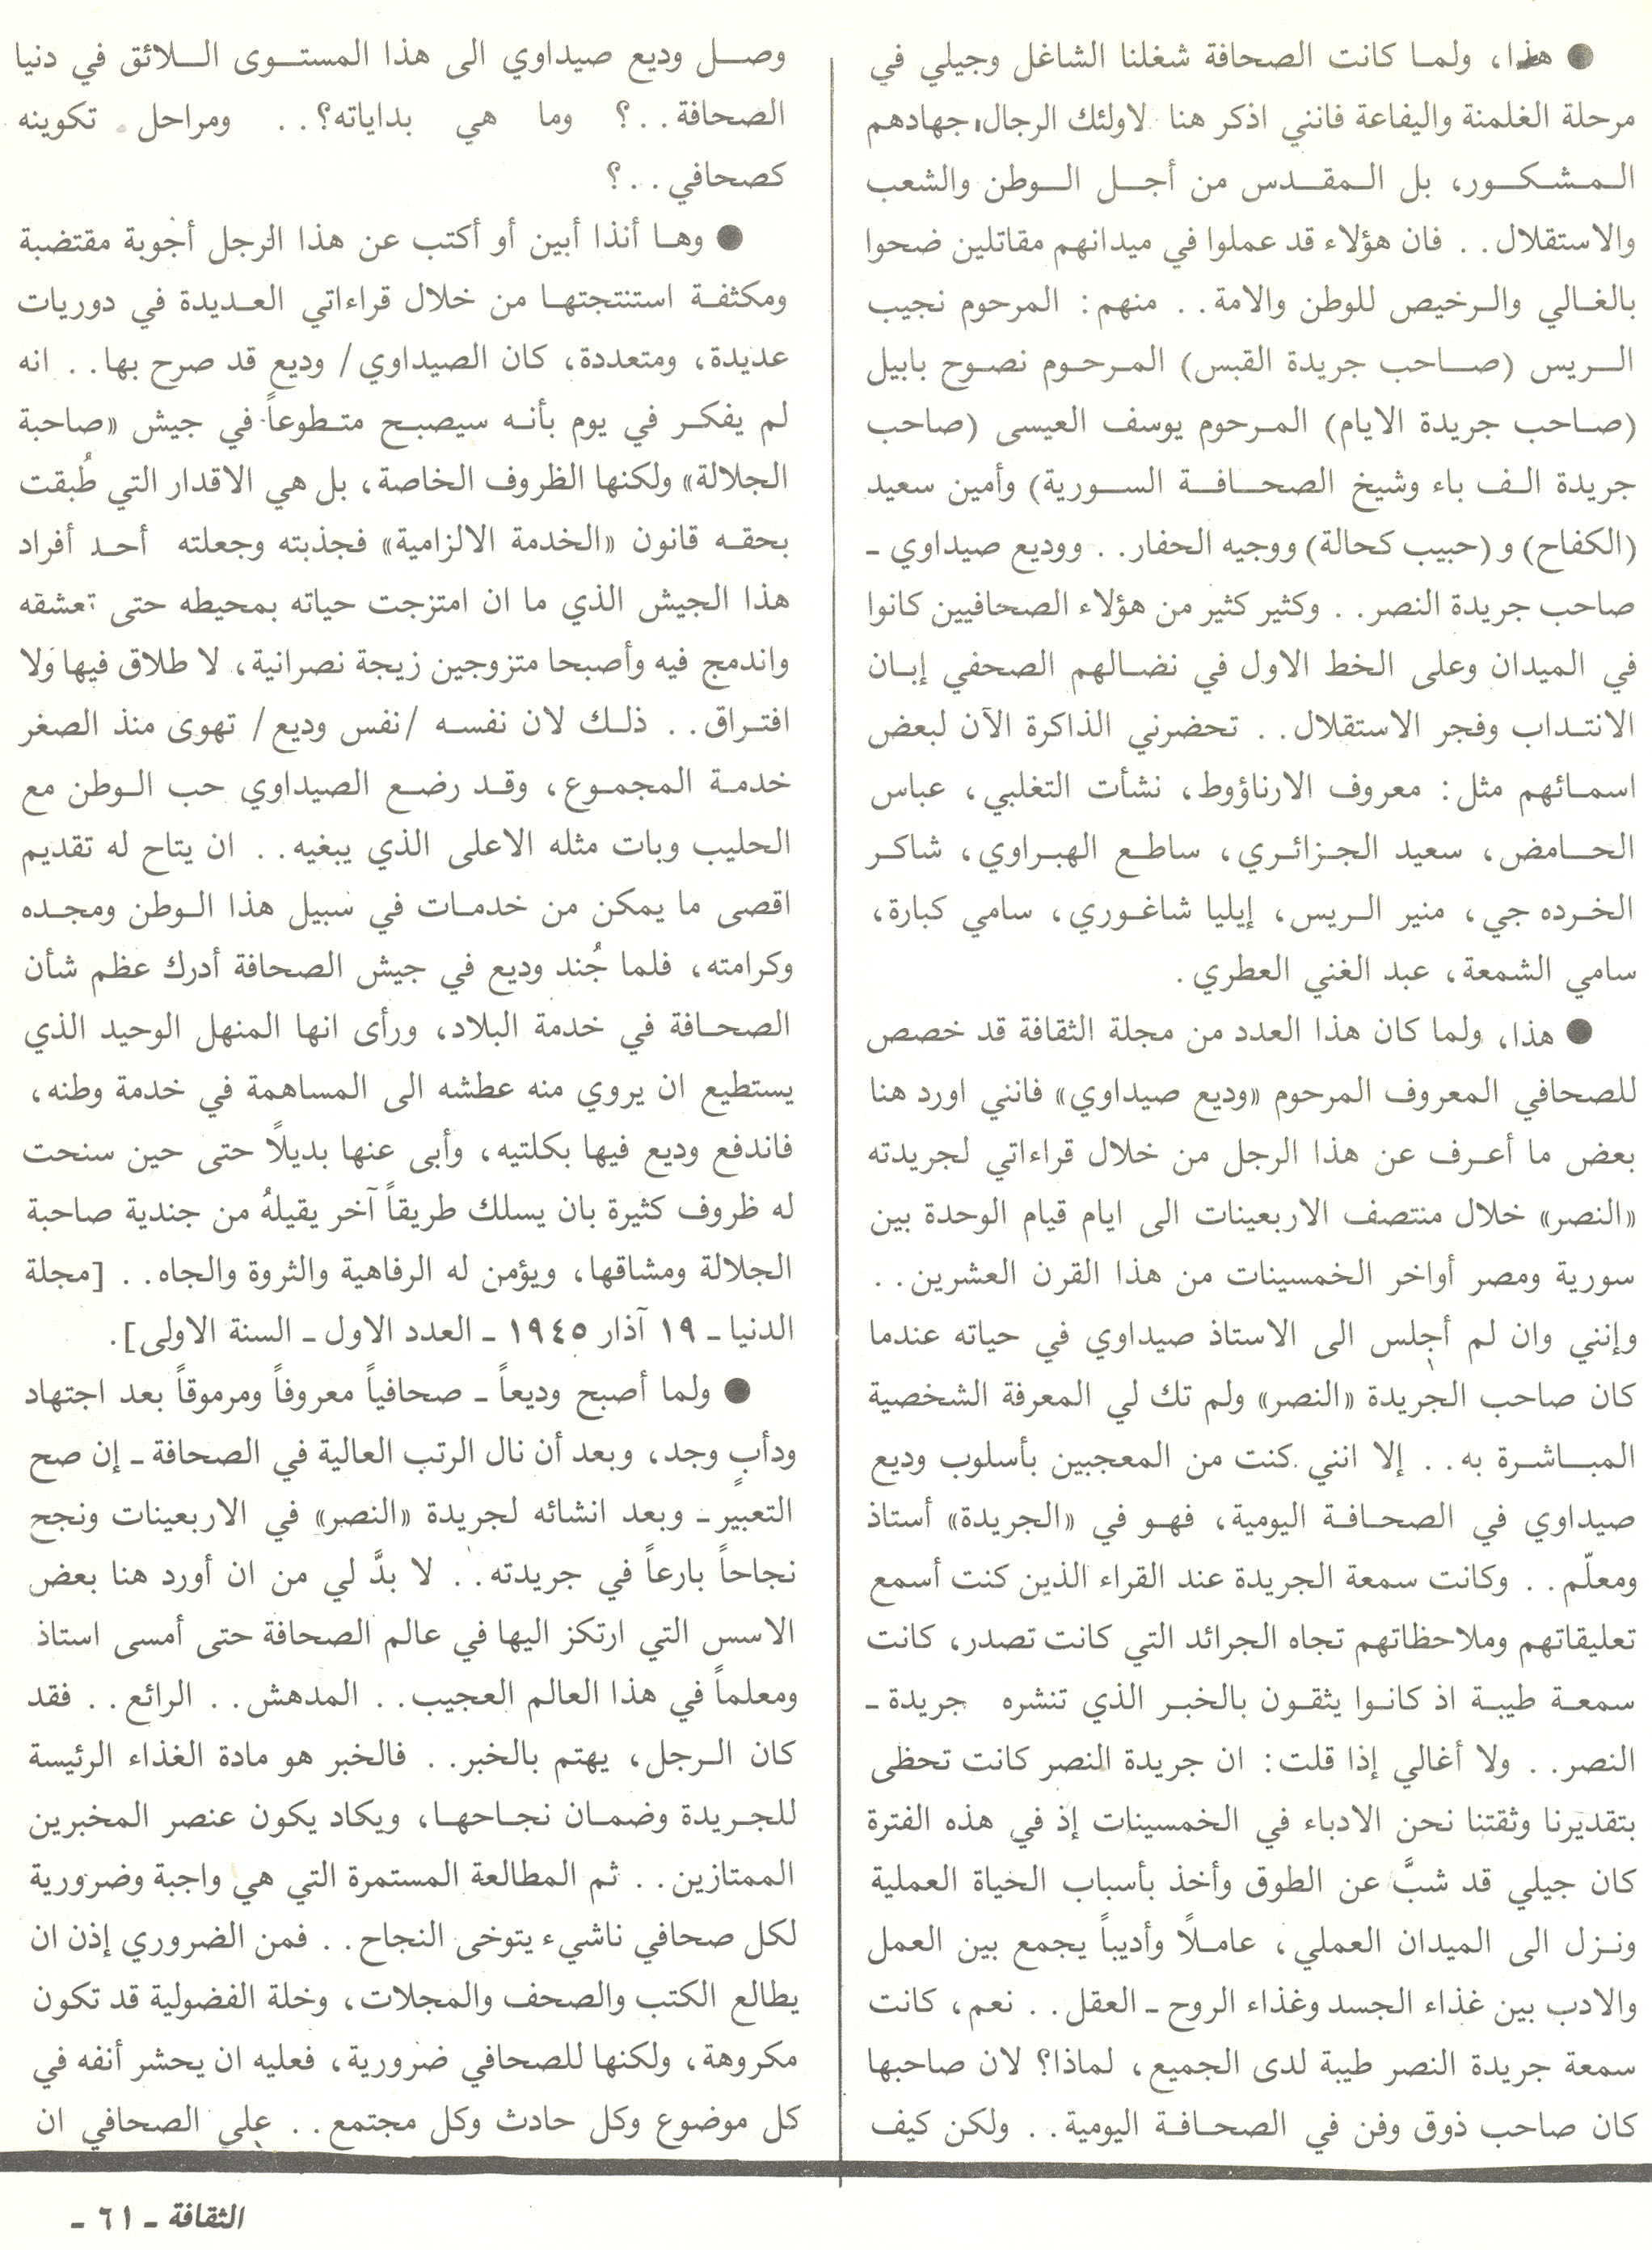 ● هذا، ولما كانت الصحافة شغلنا الشاغل وجيلي في
مرحلة الغلمنة واليفاعة فانني اذكر هنا لاولئك الرجال جهادهم
المشكور، بل المقدس من أجل الوطن والشعب
والاستقلال.. فان هؤلاء قد عملوا في ميدانهم مقاتلين ضحوا
بالغالي والرخيص للوطن والامة.. منهم: المرحوم نجيب
الريس (صاحب جريدة القبس) المرحوم نصوح بابيل
(صاحب جريدة الايام) المرحوم يوسف العيسى (صاحب
جريدة الف باء وشيخ الصحافة السورية) وأمين سعيد
(الكفاح) و (حبيب كحالة) ووجيه الحفار.. ووديع صيداوي ـ
صاحب جريدة النصر.. وكثير كثير من هؤلاء الصحافيين كانوا
في الميدان وعلى الخط الاول في نضالهم الصحفي إبان
الانتداب وفجر الاستقلال.. تحضرني الذاكرة الآن لبعض
اسمائهم مثل: معروف الارناؤوط، نشأت التغلبي، عباس
الحامض، سعيد الجزائري، ساطع الهبراوي، شاكر
الخرده جي، منير الريس، إيليا شاغوري، سامي كبارة،
سامي الشمعة، عبد الغني العطري.
● هذا، ولما كان هذا العدد من مجلة الثقافة قد خصص
للصحافي المعروف المرحوم «وديع صيداوي» فانني اورد هنا
بعض ما أعرف عن هذا الرجل من خلال قراءاتي لجريدته
«النصر» خلال منتصف الاربعينات الى ايام قيام الوحدة بين
سورية ومصر أواخر الخمسينات من هذا القرن العشرين..
وإنني وان لم أجلس الى الاستاذ صيداوي في حياته عندما
كان صاحب الجريدة «النصر» ولم تك لي المعرفة الشخصية
المباشرة به.. إلا انني كنت من المعجبين بأسلوب وديع
صيداوي في الصحافة اليومية، فهو في «الجريدة» أستاذ
ومعلّم.. وكانت سمعة الجريدة عند القراء الذين كنت أسمع
تعليقاتهم وملاحظاتهم تجاه الجرائد التي كانت تصدر، كانت
سمعة طيبة اذ كانوا يثقون بالخبر الذي تنشره جريدة ـ
النصر.. ولا أغالي إذا قلت: ان جريدة النصر كانت تحظى
بتقديرنا وثقتنا نحن الادباء في الخمسينات إذ في هذه الفترة
كان جيلي قد شبَّ عن الطوق وأخذ بأسباب الحياة العملية
ونزل الى الميدان العملي، عاملاً وأديباً يجمع بين العمل
والادب بين غذاء الجسد وغذاء الروح ـ العقل.. نعم، كانت
سمعة جريدة النصر طيبة لدى الجميع، لماذا؟ لان صاحبها
كان صاحب ذوق وفن في الصحافة اليومية.. ولكن كيف
وصل وديع صيداوي الى هذا المستوى اللائق في دنيا
الصحافة..؟ وما هي بداياته؟.. ومراحل تكوينه
كصحافي..؟
● وها أنذا أبين أو أكتب عن هذا الرجل أجوبة مقتضبة
ومكثفة استنتجتها من خلال قراءاتي العديدة في دوريات
عديدة، ومتعددة، كان الصيداوي/ وديع قد صرح بها.. انه
لم يفكر في يوم بأنه سيصبح متطوعاً في جيش «صاحبة
الجلالة» ولكنها الظروف الخاصة، بل هي الاقدار التي طُبقت
بحقه قانون «الخدمة الالزامية» فجذبته وجعلته أحد أفراد
هذا الجيش الذي ما ان امتزجت حياته بمحيطه حتى تعشقه
واندمج فيه وأصبحا متزوجين زيجة نصرانية، لا طلاق فيها ولا
افتراق.. ذلك لان نفسه /نفس وديع/ تهوى منذ الصغر
خدمة المجموع، وقد رضع الصيداوي حب الوطن مع
الحليب وبات مثله الاعلى الذي يبغيه.. ان يتاح له تقديم
اقصى ما يمكن من خدمات في سبيل هذا الوطن ومجده
وكرامته، فلما جُند وديع في جيش الصحافة أدرك عظم شأن
الصحافة في خدمة البلاد، ورأى انها المنهل الوحيد الذي
يستطيع ان يروي منه عطشه الى المساهمة في خدمة وطنه،
فاندفع وديع فيها بكلتيه، وأبى عنها بديلاً حتى حين سنحت
له ظروف كثيرة بان يسلك طريقاً آخر يقيلهُ من جندية صاحبة
الجلالة ومشاقها، ويؤمن له الرفاهية والثروة والجاه.. [مجلة
الدنيا ـ ١٩ آذار ١٩٤٥ ـ العدد الاول ـ السنة الاولى].
● ولما أصبح وديعاً ـ صحافياً معروفاً ومرموقاً بعد اجتهاد
ودأب وجد، وبعد أن نال الرتب العالية في الصحافة ـ إن صح
التعبير ـ وبعد انشائه لجريدة «النصر» في الاربعينات ونجح
نجاحاً بارعاً في جريدته.. لا بدَّ لي من ان أورد هنا بعض
الاسس التي ارتكز اليها في عالم الصحافة حتى أمسى استاذ
ومعلماً في هذا العالم العجيب.. المدهش.. الرائع.. فقد
كان الرجل، يهتم بالخبر.. فالخبر هو مادة الغذاء الرئيسة
للجريدة وضمان نجاحها، ويكاد يكون عنصر المخبرين
الممتازين.. ثم المطالعة المستمرة التي هي واجبة وضرورية
لكل صحافي ناشيء يتوخى النجاح.. فمن الضروري إذن ان
يطالع الكتب والصحف والمجلات، وخلة الفضولية قد تكون
مكروهة، ولكنها للصحافي ضرورية، فعليه ان يحشر أنفه في
كل موضوع وكل حادث وكل مجتمع.. على الصحافي ان
الثقافة ـ ٦١ ـ